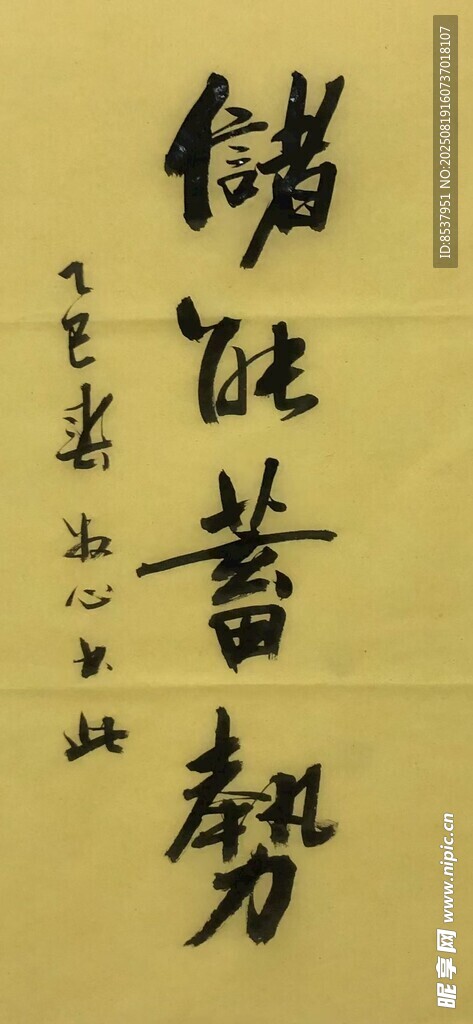 儲能蓄勢
乙巳 放心書此
ID:8537951 NO:20250819160737018107
昵享网 www.nipic.cn